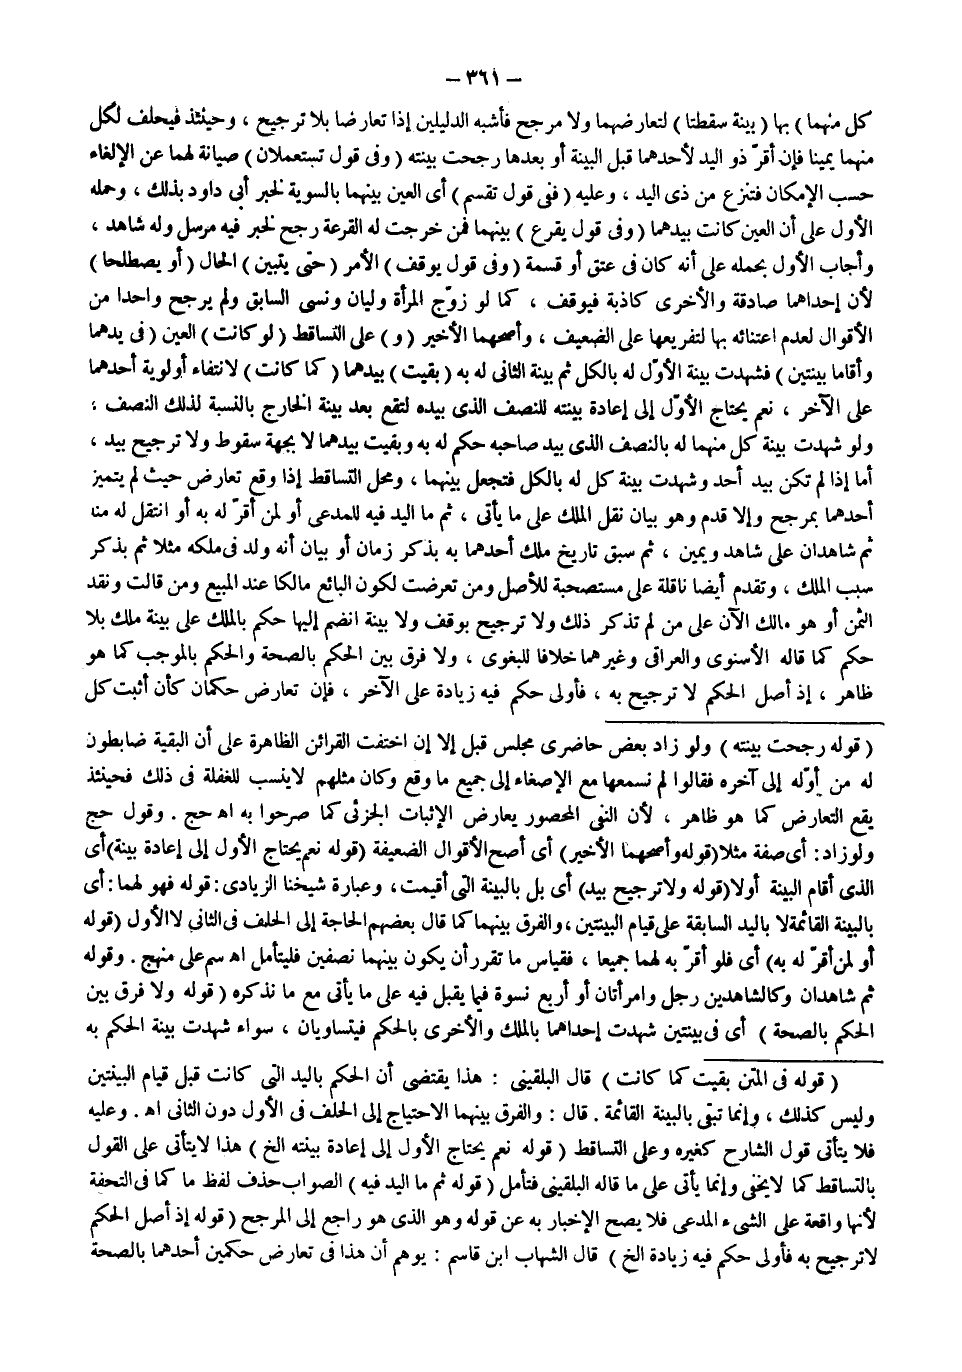 – ٣٦١ –
كل منهما ) بها ( بينة سقطتا ) لتعارضهما ولا مرجح فأشبه الدليلين إذا تعارضا بلا ترجيح ، وحينئذ فيحلف لكل
منهما يمينا فإن أقرّ ذو اليد لأحدهما قبل البينة أو بعدها رجحت بينته ( وفى قول تستعملان ) صيانة لهما عن الإلغاء
حسب الإمكان فتنزع من ذى اليد ، وعليه ( ففى قول تقسم ) أى العين بينهما بالسوية لخبر أبى داود بذلك ، وحمله
الأول على أن العين كانت بيدهما ( وفى قول يقرع ) بينهما فمن خرجت له القرعة رجح لخبر فيه مرسل وله شاهد ،
وأجاب الأول بحمله على أنه كان فى عتق أو قسمة ( وفى قول يوقف ) الأمر ( حتى يتبين ) الحال ( أو يصطلحا )
لأن إحداهما صادقة والأخرى كاذبة فيوقف ، كما لو زوّج المرأة وليان ونسى السابق ولم يرجح واحدا من
الأقوال لعدم اعتنائه بها لتفريعها على الضعيف ، وأصحهما الأخير ( و ) على التساقط ( لو كانت ) العين ( فى يدهما
وأقاما بينتين ) فشهدت بينة الأوّل له بالكل ثم بينة الثانى له به ( بقيت ) بيدهما ( كما كانت ) لانتفاء أولوية أحدهما
على الآخر ، نعم يحتاج الأوّل إلى إعادة بينته للنصف الذى بيده لتقع بعد بينة الخارج بالنسبة لذلك النصف ،
ولو شهدت بينة كل منهما له بالنصف الذى بيد صاحبه حكم له به وبقيت بيدهما لا بجهة سقوط ولا ترجيح بيد ،
أما إذا لم تكن بيد أحد وشهدت بينة كل له بالكل فتجعل بينهما ، ومحل التساقط إذا وقع تعارض حيث لم يتميز
أحدهما بمرجح وإلا قدم وهو بيان نقل الملك على ما يأتى ، ثم ما اليد فيه للمدعى أو لمن أقرّ له به أو انتقل له منا
ثم شاهدان على شاهد ويمين ، ثم سبق تاريخ ملك أحدهما به بذكر زمان أو بيان أنه ولد فى ملكه مثلا ثم بذكر
سبب الملك ، وتقدم أيضا ناقلة على مستصحبة للأصل ومن تعرضت لكون البائع مالكا عند المبيع ومن قالت ونقد
الثمن أو هو مالك الآن على من لم تذكر ذلك ولا ترجيح بوقف ولا بينة انضم إليها حكم بالملك على بينة ملك بلا
حكم كما قاله الأسنوى والعراقى وغيرهما خلافا للبغوى ، ولا فرق بين الحكم بالصحة والحكم بالموجب كما هو
ظاهر ، إذ أصل الحكم لا ترجيح به ، فأولى حكم فيه زيادة على الآخر ، فإن تعارض حكمان كأن أثبت كل
( قوله رجحت بينته ) ولو زاد بعض حاضرى مجلس قبل إلا إن اختفت القرائن الظاهرة على أن البقية ضابطون
له من أوّله إلى آخره فقالوا لم نسمعها مع الإصغاء إلى جميع ما وقع وكان مثلهم لا ينسب للغفلة فى ذلك فحينئذ
يقع التعارض كما هو ظاهر ، لأن النفى المحصور يعارض الإثبات الجزئى كما صرحوا به اه حج . وقول حج
ولو زاد : أى صفة مثلا (قوله وأصحهما الأخير) أى أصح الأقوال الضعيفة (قوله نعم يحتاج الأول إلى إعادة بينة) أى
الذى أقام البينة أولا (قوله ولا ترجيح بيد) أى بل بالبينة التى أقيمت ، وعبارة شيخنا الزيادى : قوله فهو لهما : أى
بالبينة القائمة لا باليد السابقة على قيام البينتين ، والفرق بينهما كما قال بعضهم الحاجة إلى الحلف فى الثانى لا الأول (قوله
أو لمن أقرّ له به) أى فلو أقرّ به لهما جميعا ، فقياس ما تقرر أن يكون بينهما نصفين فليتأمل اه سم على منهج . وقوله
ثم شاهدان وكالشاهدين رجل وامرأتان أو أربع نسوة فيما يقبل فيه على ما يأتى مع ما نذكره ( قوله ولا فرق بين
الحكم بالصحة ) أى فى بينتين شهدت إحداهما بالملك والأخرى بالحكم فيتساويان ، سواء شهدت بينة الحكم به
( قوله فى المتن بقيت كما كانت ) قال البلقينى : هذا يقتضى أن الحكم باليد التى كانت قبل قيام البينتين
وليس كذلك ، وإنما تبقى بالبينة القائمة . قال : والفرق بينهما الاحتياج إلى الحلف فى الأول دون الثانى اه . وعليه
فلا يتأتى قول الشارح كغيره وعلى التساقط ( قوله نعم يحتاج الأول إلى إعادة بينته الخ ) هذا لا يتأتى على القول
بالتساقط كما لا يخفى وإنما يأتى على ما قاله البلقينى فتأمل ( قوله ثم ما اليد فيه ) الصواب حذف لفظ ما كما فى التحفة
لأنها واقعة على الشىء المدعى فلا يصح الإخبار به عن قوله وهو الذى هو راجع إلى المرجح ( قوله إذ أصل الحكم
لا ترجيح به فأولى حكم فيه زيادة الخ ) قال الشهاب ابن قاسم : يوهم أن هذا فى تعارض حكمين أحدهما بالصحة